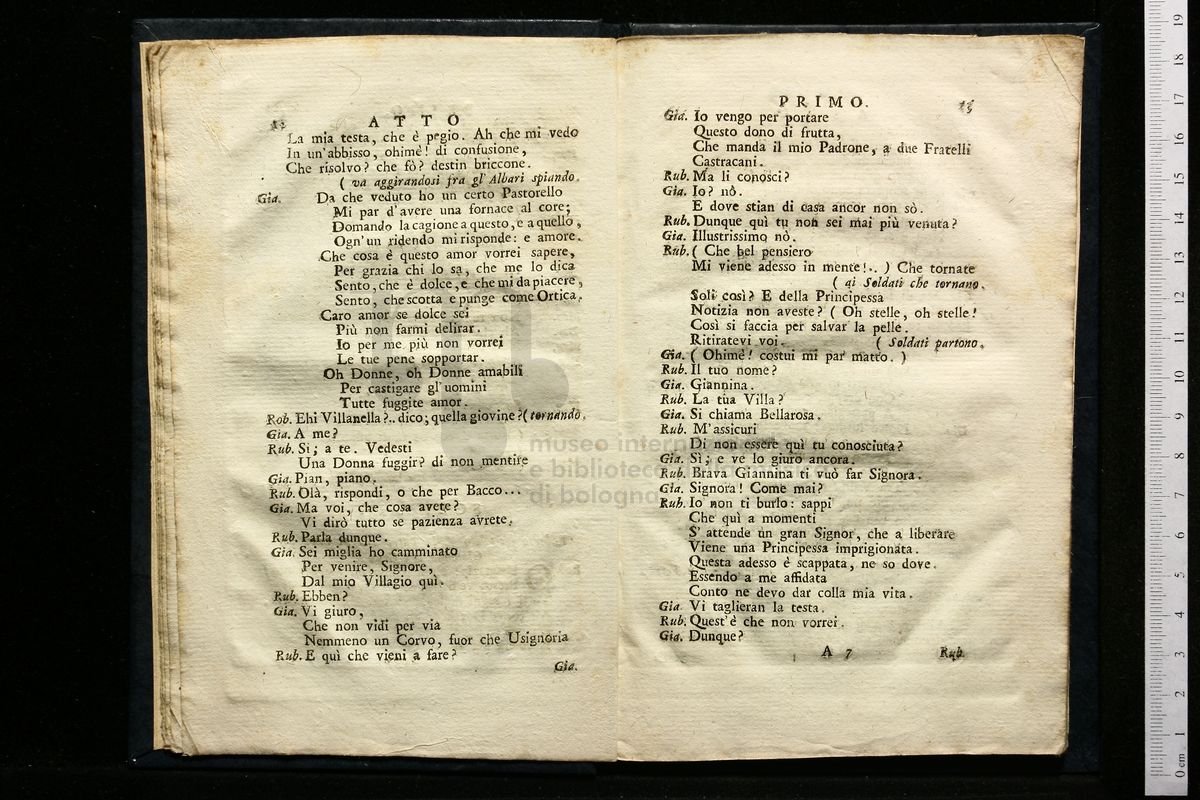 12 ATTO
La mia testa, che è pegio. Ah che mi vedo
In un'abbisso, ohimè! di confusione,
Che risolvo? che fò? destin briccone.
( va aggirandosi fra gl' Albari spiando.
Gia. Da che veduto ho un certo Pastorello
Mi par d'avere una fornace al core;
Domando la cagione a questo, e a quello,
Ogn'un ridendo mi risponde: e amore.
Che cosa è questo amor vorrei sapere,
Per grazia chi lo sa, che me lo dica
Sento, che è dolce, e che mi da piacere,
Sento, che scotta e punge come Ortica.
Caro amor se dolce sei
Più non farmi delirar.
Io per me più non vorrei
Le tue pene sopportar.
Oh Donne, oh Donne amabili
Per castigare gl'uomini
Tutte fuggite amor.
Rob. Ehi Villanella?.. dico; quella giovine? ( tornando.
Gia. A me?
Rub. Si; a te. Vedesti
Una Donna fuggir? di non mentire
Gia. Pian, piano.
Rub. Olà, rispondi, o che per Bacco...
Gia. Ma voi, che cosa avete?
Vi dirò tutto se pazienza avrete.
Rub. Parla dunque.
Gia. Sei miglia ho camminato
Per venire, Signore,
Dal mio Villagio quì.
Rub. Ebben?
Gia. Vi giuro,
Che non vidi per via
Nemmeno un Corvo, fuor che Usignoria
Rub. E quì che vieni a fare?
Gia.
PRIMO. 13
Gia. Io vengo per portare
Questo dono di frutta,
Che manda il mio Padrone, a due Fratelli
Castracani.
Rub. Ma li conosci?
Gia. Io? nò.
E dove stian di casa ancor non sò.
Rub. Dunque quì tu non sei mai più venuta?
Gia. Illustrissimo nò.
Rub. ( Che bel pensiero
Mi viene adesso in mente!.. ) Che tornate
( ai Soldati che tornano.
Soli così? E della Principessa
Notizia non aveste? ( Oh stelle, oh stelle!
Così si faccia per salvar la pelle.
Ritiratevi voi. ( Soldati partono.
Gia. ( Ohimè! costui mi par matto. )
Rub. Il tuo nome?
Gia. Giannina.
Rub. La tua Villa?
Gia. Si chiama Bellarosa.
Rub. M'assicuri
Di non essere quì tu conosciuta?
Gia. Sì; e ve lo giuro ancora.
Rub. Brava Giannina ti vuò far Signora.
Gia. Signora! Come mai?
Rub. Io non ti burlo: sappi
Che quì a momenti
S' attende un gran Signor, che a liberare
Viene una Principessa imprigionata.
Questa adesso è scappata, ne so dove.
Essendo a me affidata
Conto ne devo dar colla mia vita.
Gia. Vi taglieran la testa.
Rub. Quest'è che non vorrei.
Gia. Dunque?
A 7 Rub.
museo intern
e biblioteca
di bologna
0 cm 1 2 3 4 5 6 7 8 9 10 11 12 13 14 15 16 17 18 19